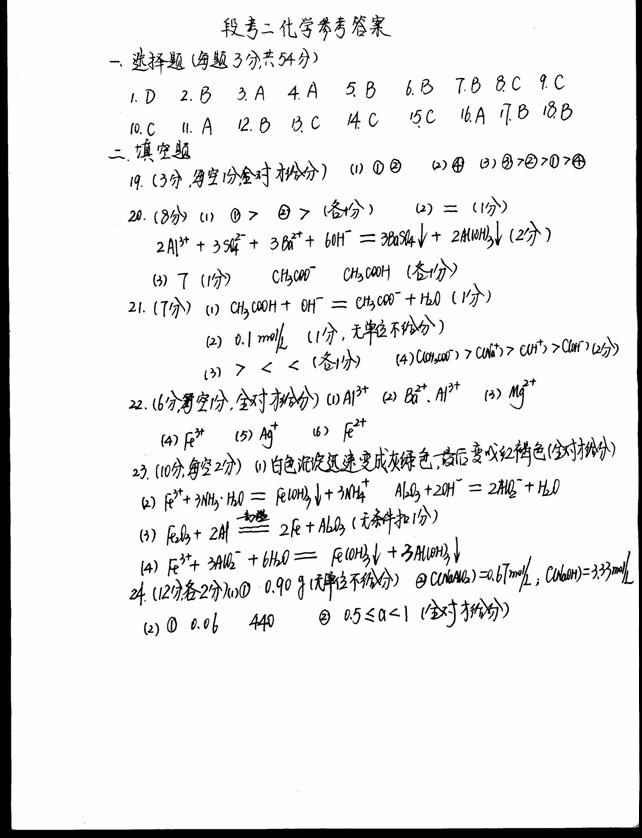 段考二化学参考答案
一、选择题(每题3分,共54分)
1. D 2. B 3. A 4. A 5. B 6. B 7. B 8. C 9. C
10. C 11. A 12. B 13. C 14. C 15. C 16. A 17. B 18. B
二、填空题
19. (3分,每空1分,全对才给分) (1) ①② (2) ④ (3) ③>②>①>④
20. (8分) (1) ①> ②> (各1分) (2) = (1分)
2Al³⁺ + 3SO₄²⁻ + 3Ba²⁺ + 6OH⁻ = 3BaSO₄↓ + 2Al(OH)₃↓ (2分)
(3) 7 (1分) CH₃COO⁻ CH₃COOH (各1分)
21. (7分) (1) CH₃COOH + OH⁻ = CH₃COO⁻ + H₂O (1分)
(2) 0.1 mol/L (1分,无单位不给分)
(3) > < < (各1分) (4) C(CH₃COO⁻) > C(Na⁺) > C(H⁺) > C(OH⁻) (2分)
22. (6分,每空1分,全对才给分) (1) Al³⁺ (2) Ba²⁺、Al³⁺ (3) Mg²⁺
(4) Fe³⁺ (5) Ag⁺ (6) Fe²⁺
23. (10分,每空2分) (1) 白色沉淀迅速变成灰绿色,最后变成红褐色(全对才给分)
(2) Fe³⁺ + 3NH₃·H₂O = Fe(OH)₃↓ + 3NH₄⁺ Al₂O₃ + 2OH⁻ = 2AlO₂⁻ + H₂O
(3) Fe₂O₃ + 2Al 高温 == 2Fe + Al₂O₃ (无条件扣1分)
(4) Fe³⁺ + 3AlO₂⁻ + 6H₂O = Fe(OH)₃↓ + 3Al(OH)₃↓
24. (12分,各2分) (1) ① 0.90 g (无单位不给分) ② C(NaAlO₂)=0.67mol/L; C(NaOH)=3.33mol/L
(2) ① 0.06 440 ② 0.5≤a<1 (全对才给分)